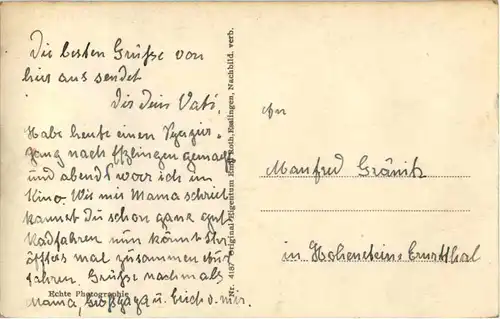 Die besten Grüße von
hier aus sendet
Dir Dein Vati,
Habe heute einen Spazier-
gang nach Eßlingen gemacht
und abends war ich im
Kino. Wie mir Mama schrieb
kannst Du schon ganz gut
Radfahren nun könnt Ihr
öfters mal zusammen
fahren. Grüße nochmals
Mama, u. Erich v. mir.
Echte Photographie
Nr. 4187 Original-Eigentum Roth, Esslingen, Nachbild. verb.
An
Manfred Gränitz
in Hohenstein-Ernstthal